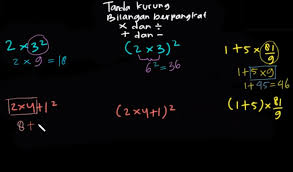 Tanda kurung
Bilangan berpangkat
× dan ÷
+ dan -
2 × 3²
2 × 9 = 18
(2 × 3)²
6² = 36
1 + 5 × 81/9
1 + 5 × 9
1 + 45 = 46
2 × 4 + 1²
8 +
(2 × 4 + 1)²
(1 + 5) × 81/9